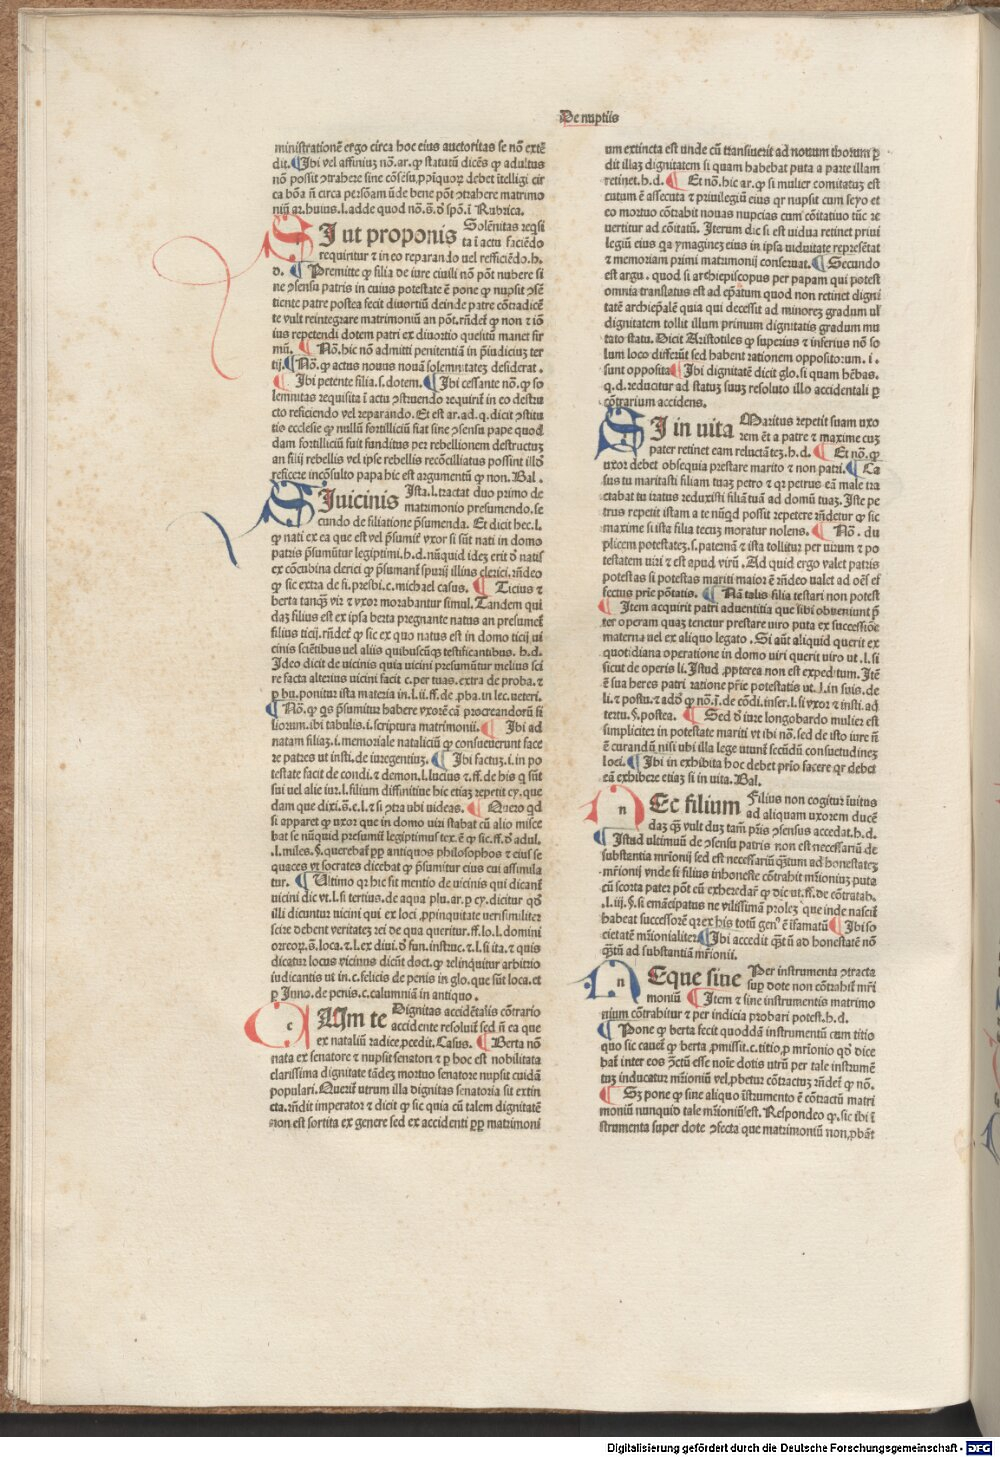 De nuptiis
ministrationẽ ergo circa hoc eius auctoritas se nõ extẽ
dit. Ibi vel affinium nõ. ar. ꝙ statutũ dicẽs ꝙ adultus
nõ possit ↄtrahere sine cõsẽsu. ꝓpiquoꝝ debet ĩtelligi cir
ca bõa ñ circa persõam ũde bene põt ↄtrahere matrimo
niũ ar. huius. l. adde quod nõ. s. ð spõ. ĩ Rubrica.
SI ut proponis Solẽnitas reqsi
ta ĩ actu faciẽdo
requiritur ⁊ in eo reparando uel resficiẽdo. h.
d. Premitte ꝙ filia de iure ciuili nõ põt nubere si
ne ↄsensu patris in cuius potestate ẽ pone ꝙ nupsit ↄsẽ
tiente patre postea fecit diuortiũ deinde patre cõtradicẽ
te vult reintegrare matrimoniũ an põt. rñdet ꝙ non ⁊ iõ
ius repetendi dotem patri ex diuortio quesitũ manet fir
mũ. Nõ. hic nõ admitti penitentiã in p̃iudiciuꝫ ter
tij. Nõ. ꝙ actus nouus nouã solemnitateꝫ desiderat.
Ibi petente filia. s. dotem. Ibi cessante nõ. ꝙ so
lemnitas requisita ĩ actu ↄstruendo requirit̃ in eo destru
cto reficiendo vel reparando. Et est ar. ad. q. dicit ↄstitu
tio ecclesie ꝙ nullũ fortilliciũ fiat sine ↄsensu pape quod
dam fortilliciũ fuit funditus per rebellionem destructuꝫ
an filij rebellis vel ipse rebellis recõcilliatus possint illð
reficere incõsulto papa hic est argumentũ ꝙ non. Bal.
SI uicinis Ista. l. tractat duo primo de
matrimonio presumendo. se
cundo de filiatione p̃sumenda. Et dicit hec. l.
ꝙ nati ex ea que est vel p̃sumit̃ vxor si sũt nati in domo
patris p̃sumũtur legitimi. h. d. nũquid ideꝫ erit ð natis
ex cõcubina clerici ꝙ p̃sumant̃ spurij illius clerici. rñdeo
ꝙ sic extra de fi. presbi. c. michael casus. Ticius ⁊
berta tanqꝫ vir ⁊ vxor morabantur simul. Tandem qui
daꝫ filius est ex ipsa berta pregnante natus an presumet̃
filius ticij. rñdet̃ ꝙ sic ex quo natus est in domo ticij ui
cinis sciẽtibus uel aliis quibuscũqꝫ testificantibus. h. d.
Ideo dicit de uicinis quia uicini presumũtur melius sci
re facta alterius uicini facit c. per tuas. extra de proba. ⁊
ꝑ hu. ponitur ista materia in. l. ii. ff. de. ꝓba. in lec. ueteri.
Nõ. ꝙ qs p̃sumitur habere vxorẽ cã procreandorũ fi
liorum. ibi tabulis. i. scriptura matrimonii. Ibi ad
natam filiaꝫ. i. memoriale nataliciũ ꝙ consueuerunt face
re patres ut insti. de iuregentiuꝫ. Ibi factuꝫ. i. in po
testate facit de condi. ⁊ demon. l. lucius ⁊. ff. de his q sũt
sui uel alie iur. l. filium diffinitiue hic etiaꝫ repetit cy. que
dam que dixi. s̃. e. l. ⁊ si ↄtra ubi uideas. Quero qd
si apparet ꝙ uxor que in domo uiri stabat cũ alio misce
bat se nũquid presumit̃ legiptimus tex. ẽ ꝙ sic. ff. ð adul.
. l. miles. §. querebat̃ ꝓp̃ antiquos philosophos ⁊ eius se
quaces vt socrates dicebat ꝙ p̃sumitur eius cui assimila
tur. Ultimo qr hic fit mentio de uicinis qui dicant̃
uicini dic vt. l. si tertius. de aqua plu. ar. ꝑ cy. dicitur qð
illi dicuntur uicini qui ex loci ꝓpinquitate uerisimiliter
scire debent veritateꝫ rei de qua queritur. ff. lo. l. domini
orreoꝝ. s̃. loca. ⁊. l. ex diui. ð fun. instruc. ⁊. l. si ita. ⁊ quis
dicatur locus vicinus dicũt doct. ꝙ relinquitur arbitrio
iudicantis ut in. c. felicis de penis in glo. que sũt loca. et
ꝑ Inno. de penis. c. calumniã in antiquo.
c
UM te Dignitas accidẽtalis cõtrario
accidente resoluit̃ sed ñ ea que
ex nataliũ radice ꝓcedit. Casus. Berta nõ
nata ex senatore ⁊ nupsit senatori ⁊ ꝑ hoc est nobilitata
clarissima dignitate tãdeꝫ mortuo senatore nupsit cuidã
populari. Querit̃ utrum illa dignitas senatoria sit extin
cta. rñdit imperator ⁊ dicit ꝙ sic quia cũ talem dignitatẽ
non est sortita ex genere sed ex accidenti ꝓp̃ matrimoni
um extincta est unde cũ transiuerit ad nouum thorum ꝑ
dit illaꝫ dignitatem si quam habebat puta a parte illam
retinet. h. d. Et nõ. hic ar. ꝙ si mulier comitatus est
cutum ẽ assecuta ⁊ priuilegiũ eius qr nupsit cum seyo et
eo mortuo cõtrahit nouas nupcias cum cõitatiuo tũc re
uertitur ad cõitatũ. Iterum dic si est uidua retinet priui
legiũ eius qa ymagineꝫ eius in ipsa uiduitate represẽtat
⁊ memoriam primi matrimonij conseruat. Secundo
est argu. quod si archiepiscopus per papam qui potest
omnia translatus est ad ep̃atum quod non retinet digni
tatẽ archiep̃alẽ quia qui decessit ad minoreꝫ gradum ul̃
dignitatem tollit illum primum dignitatis gradum mu
tato statu. Dicit Aristotiles ꝙ superius ⁊ inferius nõ so
lum loco differũt sed habent rationem oppositorum. i.
sunt opposita Ibi dignitatẽ dicit glo. si quam hẽbas.
q. d. reducitur ad statuꝫ suuꝫ resoluto illo accidentali ꝑ
cõtrarium accidens.
SI in uita Maritus repetit suam uxo
rem ẽt a patre ⁊ maxime cuꝫ
pater retinet eam reluctãteꝫ. h. d. Et nõ. ꝙ
uxor debet obsequia prestare marito ⁊ non patri. Ca
sus tu maritasti filiam tuaꝫ petro ⁊ qr petrus eã male tra
ctabat tu iratus reduxisti filiã tuã ad domũ tuaꝫ. Iste pe
trus repetit istam a te nũqd possit repetere rñdetur ꝙ sic
maxime si ista filia tecuꝫ moratur nolens. Nõ. du
plicem potestateꝫ. s. paternã ⁊ ista tollitur per uirum ⁊ po
testatem uiri ⁊ est apud virũ. Ad quid ergo valet patris
potestas si potestas mariti maior ẽ rñdeo ualet ad oẽs ef
fectus prie põtatis. Nã talis filia testari non potest
Item acquirit patri aduentitia que sibi obueniunt p̃
ter operam quaꝫ tenetur prestare uiro puta ex successiõe
materna uel ex aliquo legato. Si aũt aliquid querit ex
quotidiana operatione in domo uiri querit uiro ut. l. si
sicut de operis li. Istud ꝓpterea non est expeditum. Itẽ
ẽ sua heres patri ratione pr̃ie potestatis ut. l. in suis. de
li. ⁊ postu. ⁊ adð ꝙ nõ. ĩ. de cõdi. inser. l. si vxor ⁊ insti. ad
tertu. §. postea. Sed ð iure longobardo mulier est
simpliciter in potestate mariti vt ibi nõ. sed de isto iure ñ
ẽ curandũ nisi ubi illa lege utunt̃ secũdũ consuetudineꝫ
loci. Ibi in exhibita hoc debet prĩo facere qr debet
eã exhibere etiaꝫ si in uita. Bal.
n
Ec filium Filius non cogitur ĩuitus
ad aliquam uxorem ducẽ
daꝫ qꝫ vult duꝫ tam̃ pr̃is ↄsensus accedat. h. d.
Istud ultimuũ de ↄsensu patris non est necessariũ de
substantia mr̃ionij sed est necessariũ qꝫtum ad honestateꝫ
mr̃ionij vnde si filius inhoneste cõtrahit mr̃ioniuꝫ puta
cũ scorta pater põt cũ exheredar̃ ꝙ dic ut. ff. de cõtratab.
. l. iij. §. si emãcipatus ne vilissimã proleꝫ que inde nascit̃
habeat successorẽ qr ex his totũ genꝰ ẽ ĩfamatũ Ibi so
cietatẽ mr̃ionialiter Ibi accedit qꝫtũ ad honestatẽ nõ
qꝫtũ ad substantiã mr̃ionii.
n
Eque sine Per instrumenta ↄtracta
suꝑ dote non cõtrahit̃ mr̃i
moniũ Item ⁊ sine instrumentis matrimo
nium cõtrahitur ⁊ per indicia probari potest. h. d.
Pone ꝙ berta fecit quoddã instrumentũ cum titio
quo sic cauet̃ ꝙ berta ꝓmissit. c. titio. ꝑ mr̃ionio qð dice
bat̃ inter eos ↄ̃ctũ esse noĩe dotis utrũ per tale instrumẽ
tuꝫ inducatur mr̃ioniũ vel ꝓbetur cõtractuꝫ rñdet̃ ꝙ nõ.
Sꝫ pone ꝙ sine aliquo ĩstrumento ẽ cõtractũ matri
moniũ nunquid tale mr̃ioniũ est. Respondeo ꝙ. sic ibi ĩ
strumenta super dote ↄfecta que matrimoniũ non ꝓbãt
Digitalisierung gefördert durch die Deutsche Forschungsgemeinschaft - DFG